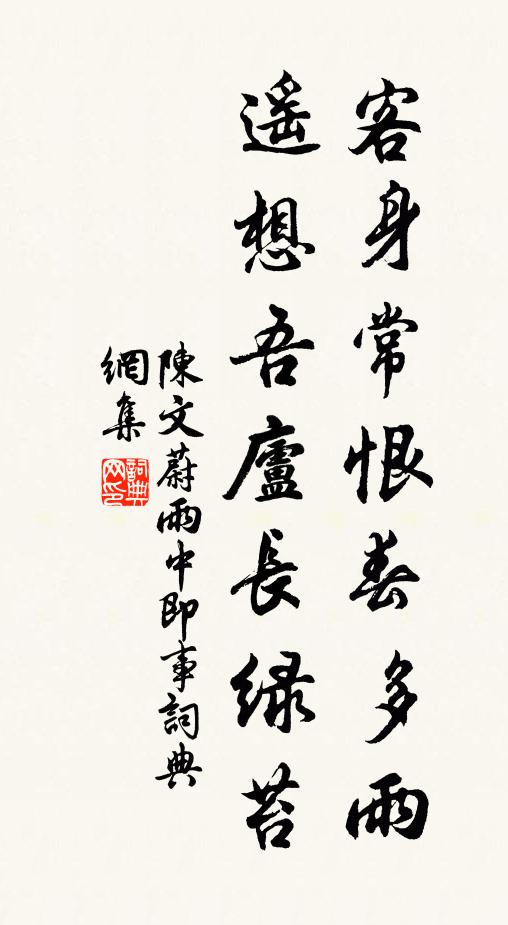 客身常恨春多雨
遥想吾廬長緑苔
陳文蔚雨中即事詞典
網集
詞典
网印